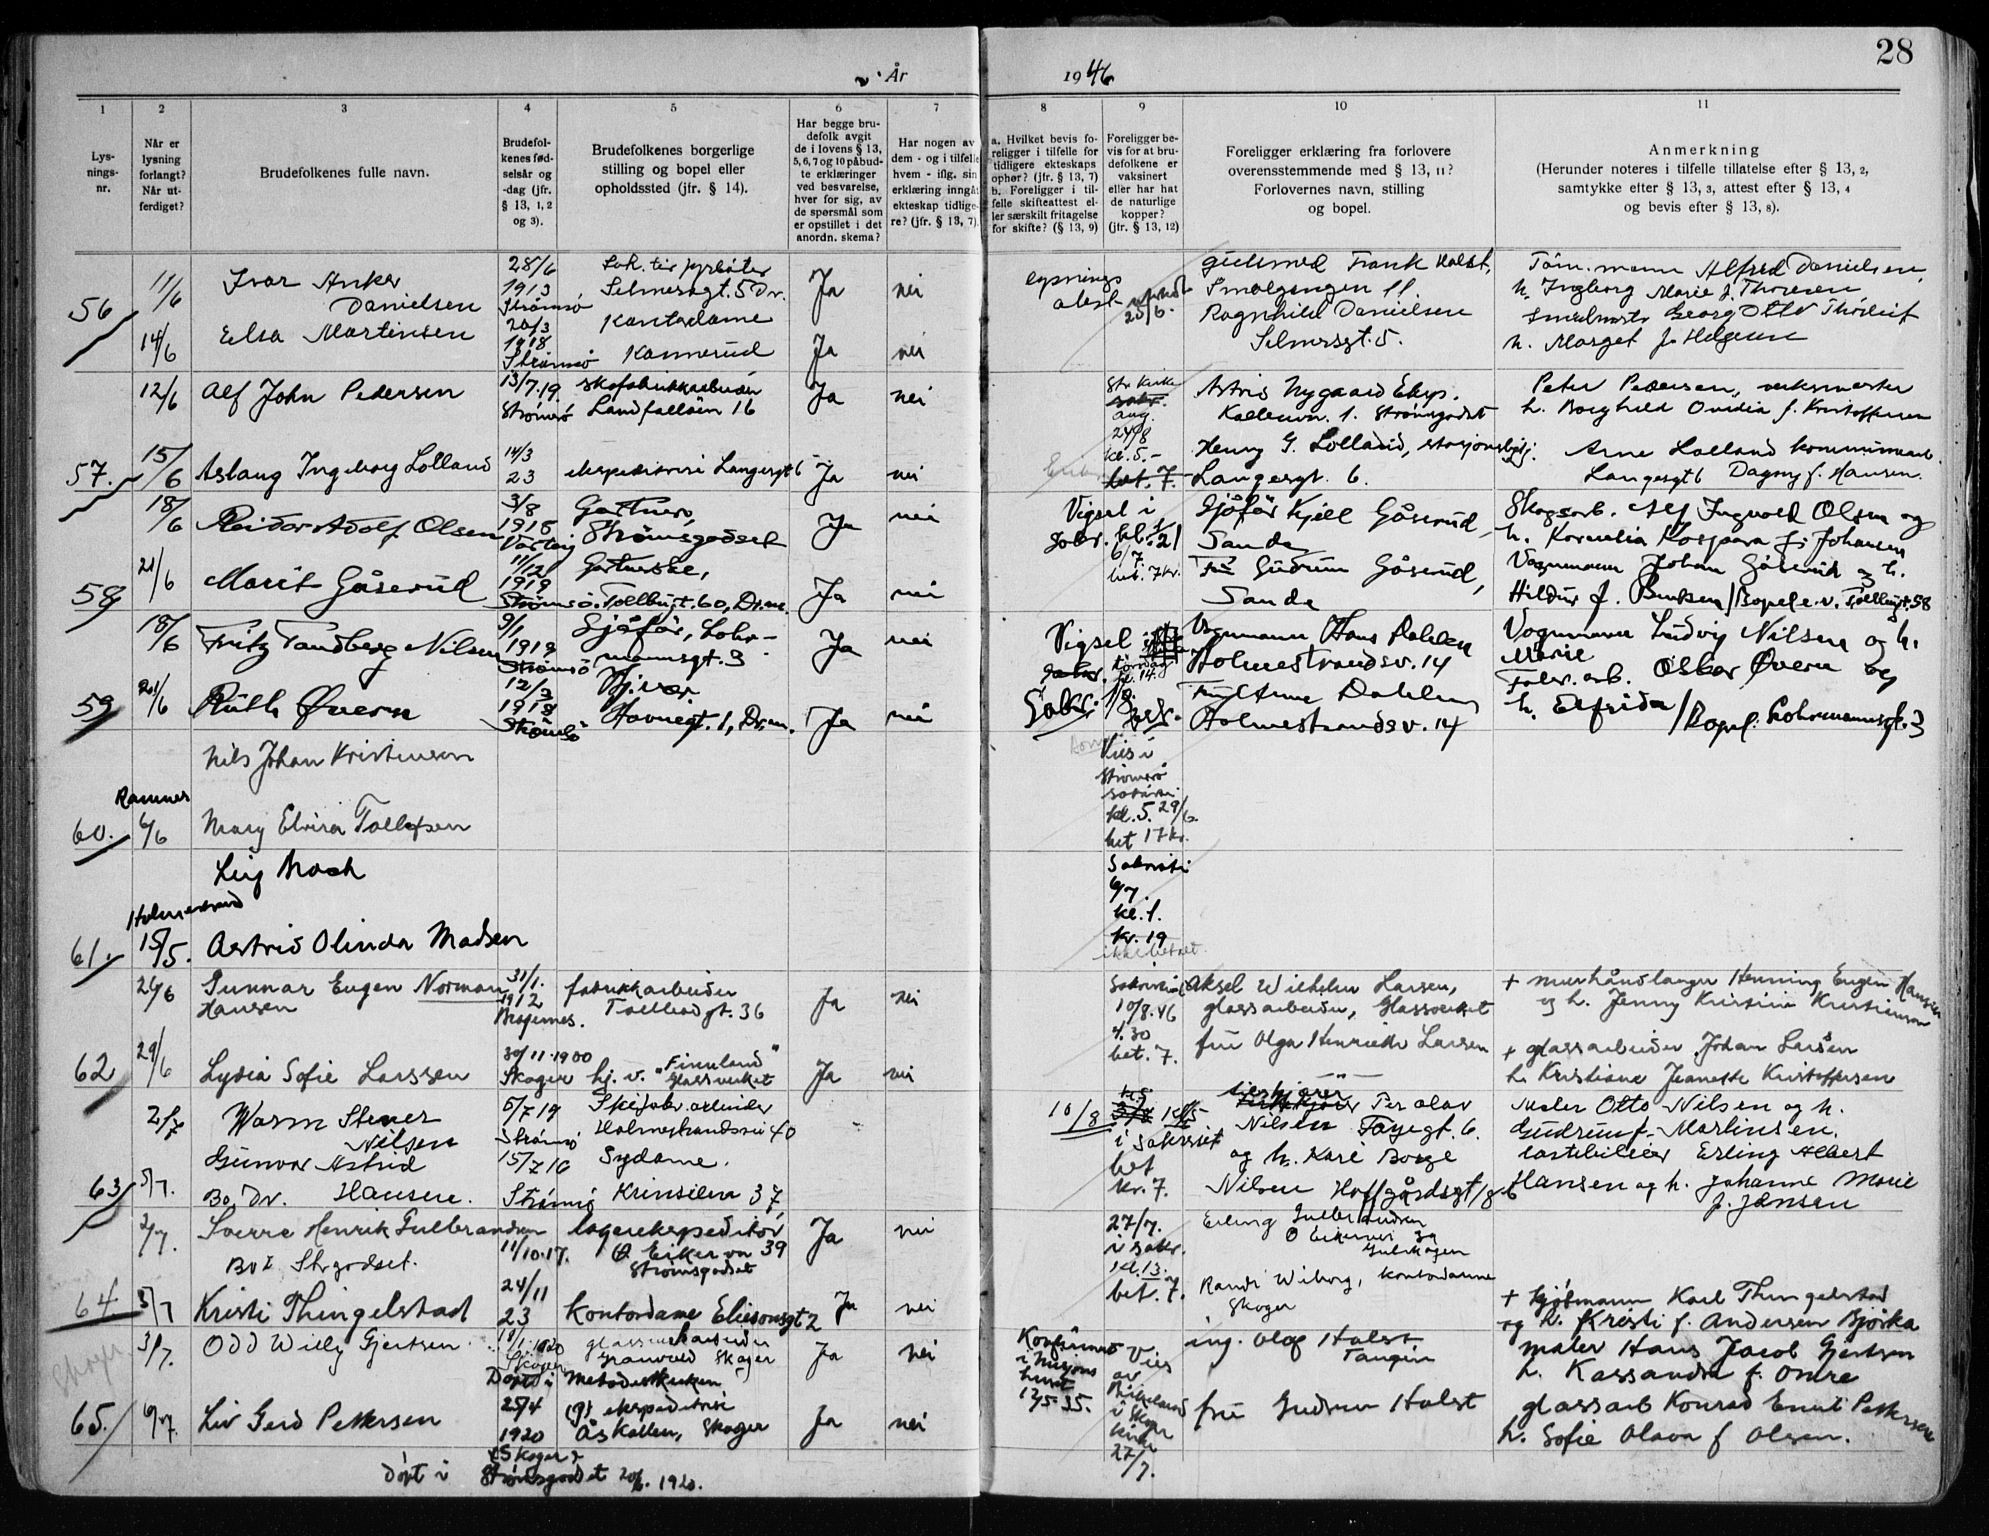 28
År
1946
1
2
3
4
5
6
7
8
9
10
11
Lys-
nings-
nr.
Når er
lysning
forlangt?
Når ut-
ferdiget?
Brudefolkenes fulle navn.
Brudefol-
kenes fød-
selsår og
-dag (jfr.
§ 13, 1, 2
og 3).
Brudefolkenes borgerlige
stilling og bopel eller
opholdssted (jfr. § 14).
Har begge bru-
defolk avgit
de i lovens § 13,
5, 6, 7 og 10 påbud-
te erklæringer
ved besvarelse,
hver for sig, av
de spørsmål som
er opstillet i det
anordn. skema?
Har nogen av
dem - og i tilfelle
hvem - iflg. sin
erklæring inngåt
ekteskap tidlige-
re? (jfr. § 13, 7).
a. Hvilket bevis fo-
religger i tilfelle for
tidligere ekteskaps
ophør? (jfr. § 13, 7)
b. Foreligger i til-
felle skifteattest el-
ler særskilt fritagelse
for skifte? (§ 13, 9)
Foreligger be-
vis for at bru-
defolkene er
vaksinert
eller har hat
de naturlige
kopper?
(jfr. § 13, 12)
Foreligger erklæring fra forlovere
overensstemmende med § 13, 11?
Forlovernes navn, stilling
og bopel.
Anmerkning
(Herunder noteres i tilfelle tillatelse efter § 13, 2,
samtykke efter § 13, 3, attest efter § 13, 4
og bevis efter § 13, 8).
56
11/6
Ivar Anker
Danielsen
28/6
1913
Strømsø
Selmersgt. 5 Dr.
Ja
nei
lysnings
attest
Frank Holst,
Smalgangen 11.
Alfred Danielsen,
h. Ingborg Marie f. Thoresen
14/6
Elsa Martinsen
20/3
1918
Strømsø
Kontordame
Konnerud
Ja
nei
Ragnhild Danielsen
Selmersgt. 5.
Georg Otto Thorleif
h. Marget f. Helgesen
12/6
Alf John Pedersen
13/7.19
Strømsø
skofabrikkarbeider
Landfalløen 16
Ja
nei
Astrid Nygaard Eksp.
1. Strømsgodset
Peter Pedersen, verksmester
h. Borghild Ovidia f. Kristoffersen
57.
15/6
Aslaug Ingeborg Lolland
14/3
23
ekspeditrise Langesgt 6
Ja
nei
24/8
kl. 5.-
bet. 7.
Henry G. Lolland, stasjonsbetj.
Langesgt. 6.
Arne Lolland kommunearb.
Langesgt 6 Dagny f. Hansen.
18/6
Reidar Adolf Olsen
3/8
1918
Varteig
Gartner,
Strømsgodset
Ja
nei
Vigsel i
sakr. kl. 21
6/7
bet. 7 kr.
Sjåfør Kjell Gåserud,
Sande
Skogsarb. Alf Ingvald Olsen og
h. Kornelia Kaspara f. Johansen
58
21/6
Marit Gåserud
11/12
1919
Strømsø.
Gartnerske,
Tollbugt. 60, Dr.m.
Ja
nei
Frk Gudrun Gåserud,
Sande
Vognmann Johan Gåserud og h.
Hildur f. Bentsen / Bopel e. v. Tollbugt. 58
18/6
Fritz Tandberg Nilsen
9/1
1919
Strømsø
Sjåfør, Lohr-
mannsgt. 3
Ja
nei
Vigsel
Sakr.
Vognmann Hans Dahlen
Holmestrandsv. 14
Vognmann Ludvig Nilsen og h.
Marie
59
21/6
Ruth Øvern
12/3
1918
Strømsø
Hjemme
Havnegt. 1, Dr.m.
Ja
nei
Dahlen
Holmestrandsv. 14
Fabr. arb. Oskar Øvern og
h. Elfrida / Bopel: Lohrmannsgt. 3
Nils Johan Kristensen
Ramnes
60.
6/6
Mary Elvira Tollefsen
Vies i
Strømsø
kl. 5. 29/6.
bet 17 kr.
Leif Moch
Holmestrand
61.
15/5.
Astrid Olinda Madsen
Sakristi
6/7
kl. 1.
kr. 19
ikke betalt
24/6
Gunnar Eugen Norman
Hansen
31/1.
1912
Bragernes.
fabrikkarbeider
Tollbodgt. 36
Ja
nei
10/8.46
4.30
bet. 7.
Aksel Wilhelm Larsen,
glassarbeider, Glassverket
+ murhåndlanger Henning Eugen Hansen
og h. Jenny Kristine Kristiansen
62
29/6
Lydia Sofie Larssen
30/11-1900
Skoger
hj. v. "Finnland"
Glassverket
Ja
nei
fru Olga Henriette Larsen
+ glassarbeider Johan Larsen
h. Kristiane Jeanette Kristoffersen
2/7
Warm Stener
Nilsen
5/7 19
Strømsø
Skifabr. arbeider
Holmestrandsvei 40
10/8
i sakristiet
bet
kr. 7.
Per Olav
Nilsen Fayegt. 6.
og h. Kari Borge
Nilsen Hoffgårdsgt 186
Maler Otto Nilsen og h.
Gudrun f. Martinsen.
63
5/7.
Gunvor Astrid
Bo: Dr. Hansen.
15/7 16
Strømsø
Sydame.
Krinsilen 37,
Erling Albert
Hansen og h. Johanne Marie
f. Jensen
2/7.
Sverre Henrik Gulbrandsen
Bor Str.godset.
11/10-17.
lagerekspeditør
Ø Eiker vn 39
Strømsgodset
Ja
nei
27/7.
i sakr.
kl. 13.
bet. 7.
Erling Gulbrandsen
Ø Eikervei 39
Gulskogen
64
5/7
Kristi Thingelstad
24/11
23
kontordame Eliesonsgt 2
Ja
nei
Randi Wiborg, kontordame
Skoger
+ Kjøbmann Karl Thingelstad
og h. Kristi f. Andersen Bjørka
Skoger
3/7.
Odd Willy Gjertsen.
18/1 1920
Skoger
Døpt i Metodistkirken
glassverksarbeider
Granvold Skoger
Ja
nei
Konfirmert
i misjons
huset
12/5-35.
Vies
av
i Skoger
kirke
27/7.
ing. Olaf Holst
Tangen
maler Hans Jacob Gjertsen
h. Kassandra f. Omre
65.
6/7.
Liv Gerd Pettersen
25/4
1920
(Skoger)
ekspeditrise
Åskollen, Skoger
Ja
nei
fru Gudrun Holst
glassarb Konrad Emil Pettersen
h. Sofie Olava f Olsen.
døpt i Strømsgodset 20/6. 1920.